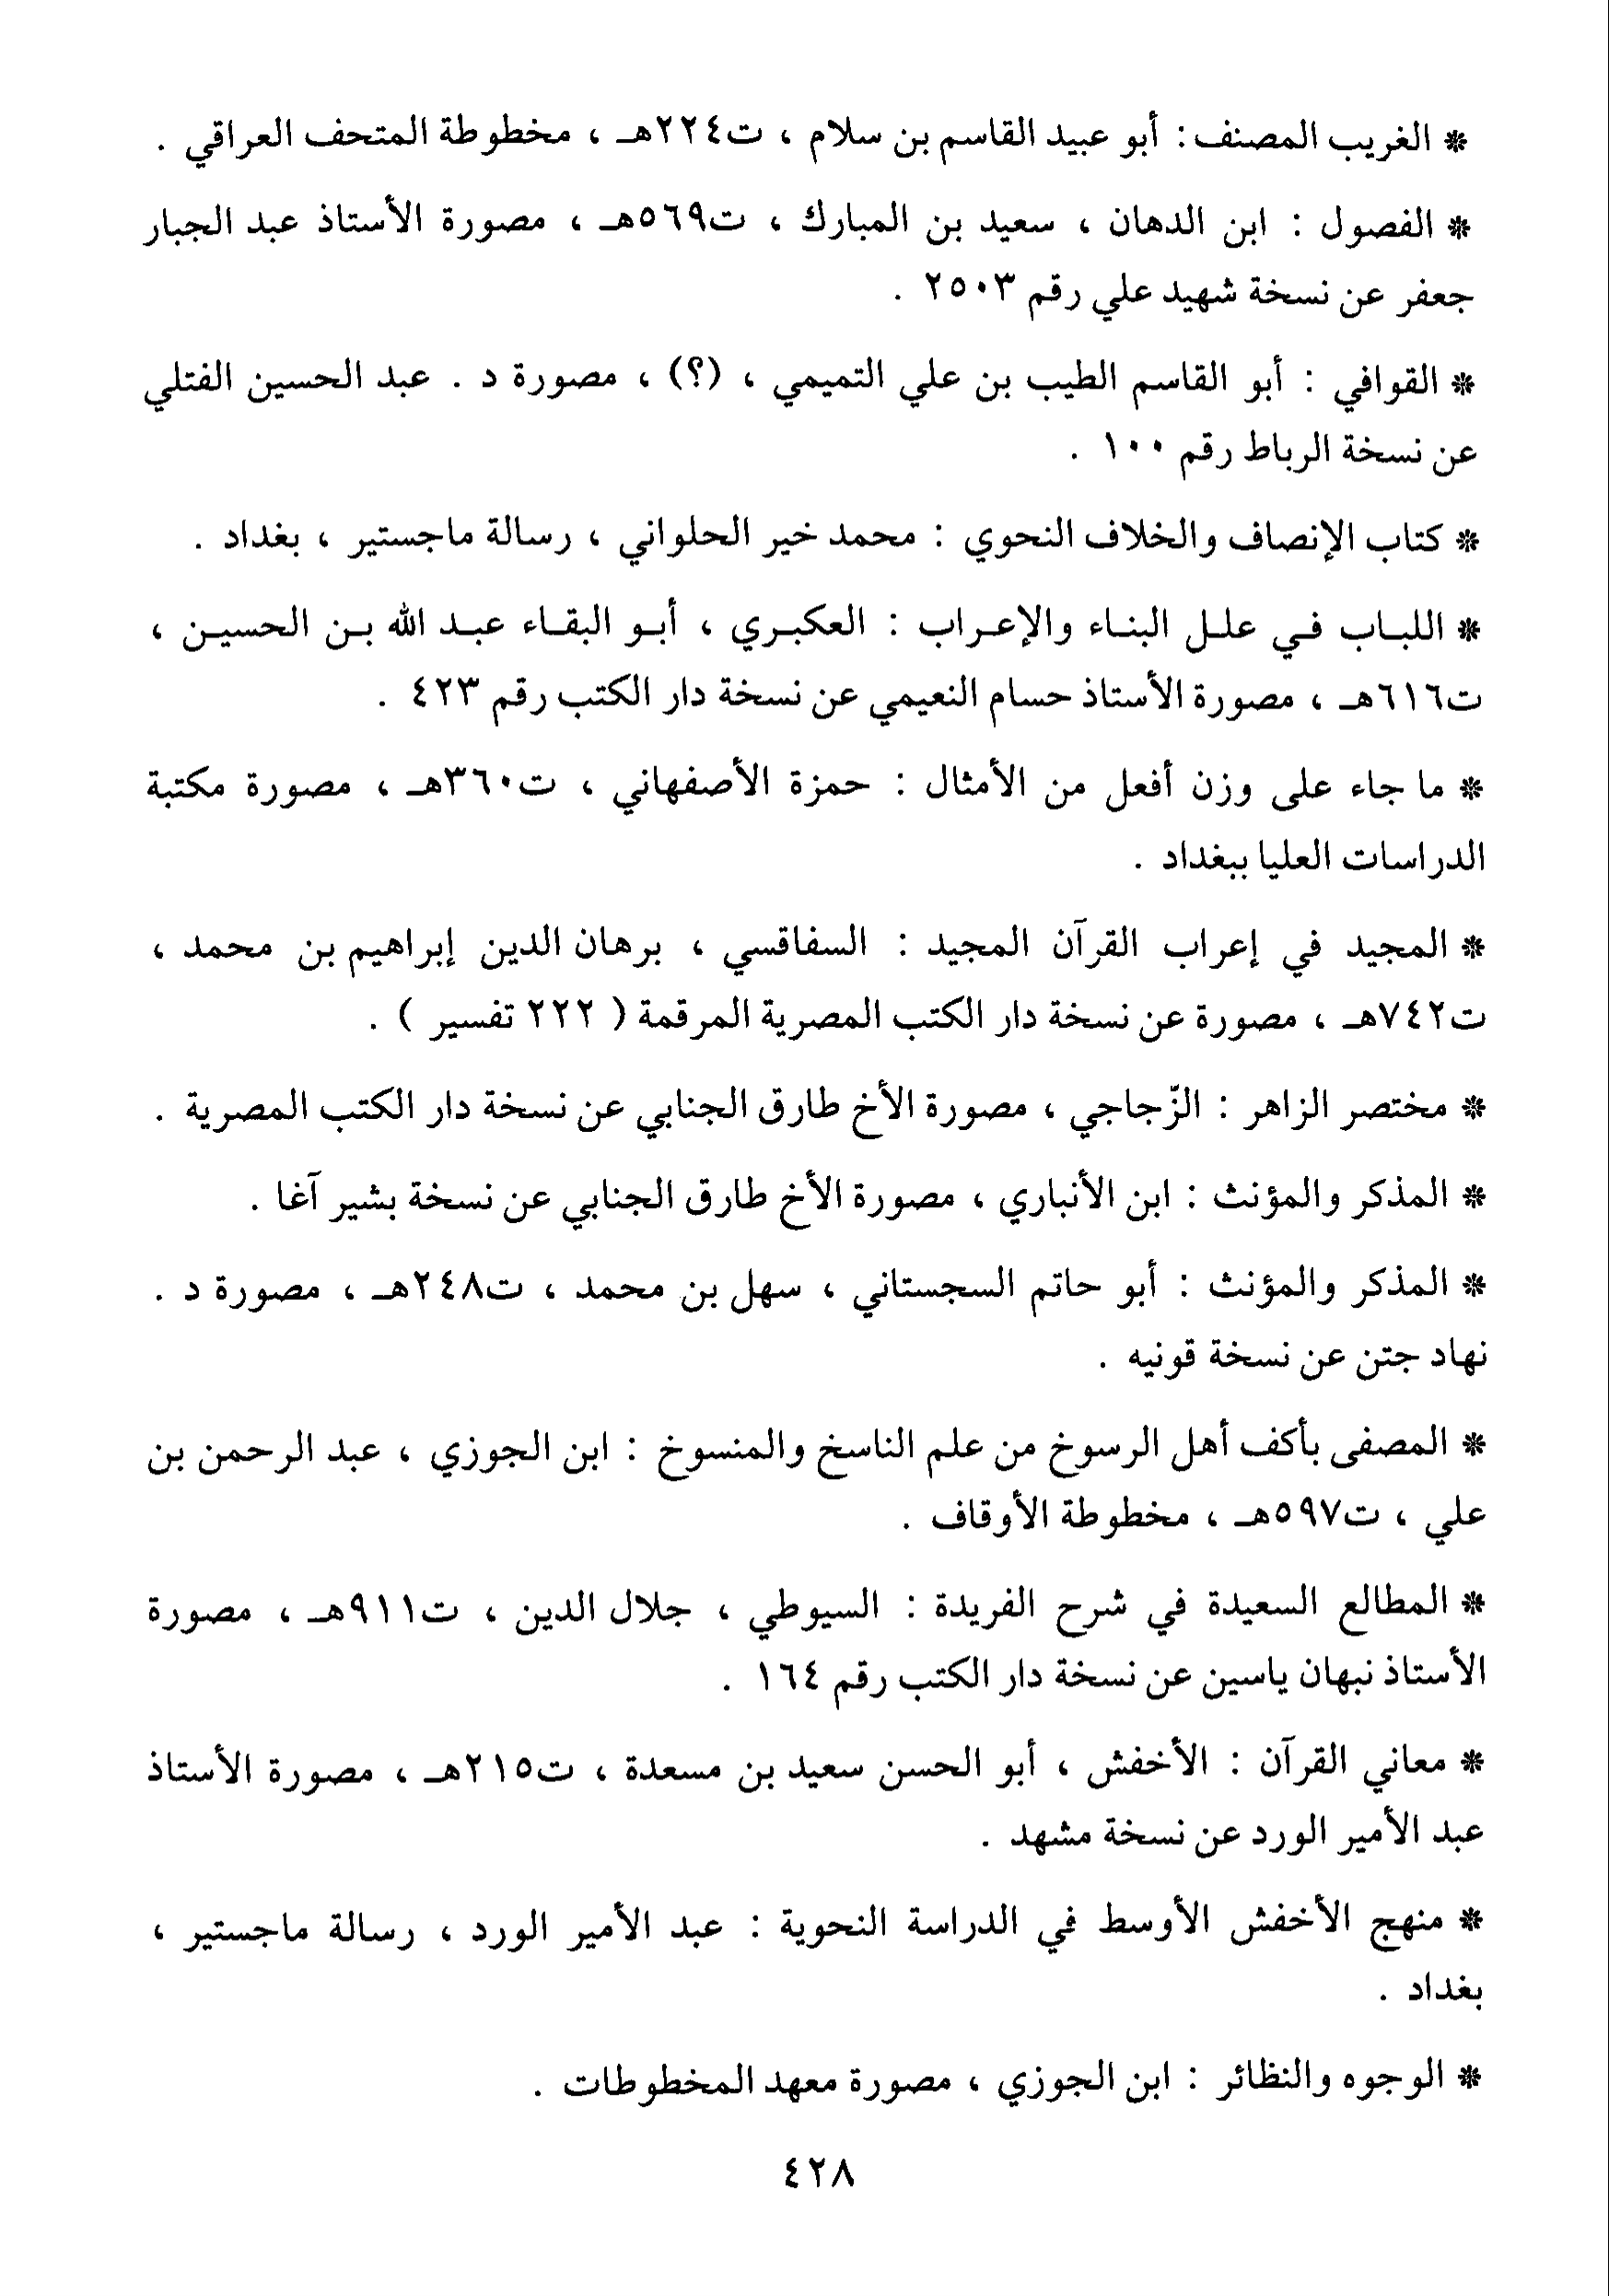 * الغريب المصنف: أبو عبيد القاسم بن سلام ، ت٢٢٤هـ ، مخطوطة المتحف العراقي .
* الفصول : ابن الدهان ، سعيد بن المبارك ، ت٥٦٩هـ ، مصورة الأستاذ عبد الجبار
جعفر عن نسخة شهيد علي رقم ٢٥٠٣ .
* القوافي : أبو القاسم الطيب بن علي التميمي ، (؟) ، مصورة د . عبد الحسين الفتلي
عن نسخة الرباط رقم ١٠٠ .
* كتاب الإنصاف والخلاف النحوي : محمد خير الحلواني ، رسالة ماجستير ، بغداد .
* اللبـاب فـي علـل البنـاء والإعـراب : العكبـري ، أبـو البقـاء عبـد الله بـن الحسيـن ،
ت٦١٦هـ ، مصورة الأستاذ حسام النعيمي عن نسخة دار الكتب رقم ٤٢٣ .
* ما جاء على وزن أفعل من الأمثال : حمزة الأصفهاني ، ت٣٦٠هـ ، مصورة مكتبة
الدراسات العليا ببغداد .
* المجيد في إعراب القرآن المجيد : السفاقسي ، برهان الدين إبراهيم بن محمد ،
ت٧٤٢هـ ، مصورة عن نسخة دار الكتب المصرية المرقمة ( ٢٢٢ تفسير ) .
* مختصر الزاهر : الزّجاجي ، مصورة الأخ طارق الجنابي عن نسخة دار الكتب المصرية .
* المذكر والمؤنث : ابن الأنباري ، مصورة الأخ طارق الجنابي عن نسخة بشير آغا .
* المذكر والمؤنث : أبو حاتم السجستاني ، سهل بن محمد ، ت٢٤٨هـ ، مصورة د .
نهاد جتن عن نسخة قونيه .
* المصفى بأكف أهل الرسوخ من علم الناسخ والمنسوخ : ابن الجوزي ، عبد الرحمن بن
علي ، ت٥٩٧هـ ، مخطوطة الأوقاف .
* المطالع السعيدة في شرح الفريدة : السيوطي ، جلال الدين ، ت٩١١هـ ، مصورة
الأستاذ نبهان ياسين عن نسخة دار الكتب رقم ١٦٤ .
* معاني القرآن : الأخفش ، أبو الحسن سعيد بن مسعدة ، ت٢١٥هـ ، مصورة الأستاذ
عبد الأمير الورد عن نسخة مشهد .
* منهج الأخفش الأوسط في الدراسة النحوية : عبد الأمير الورد ، رسالة ماجستير ،
بغداد .
* الوجوه والنظائر : ابن الجوزي ، مصورة معهد المخطوطات .
٤٢٨